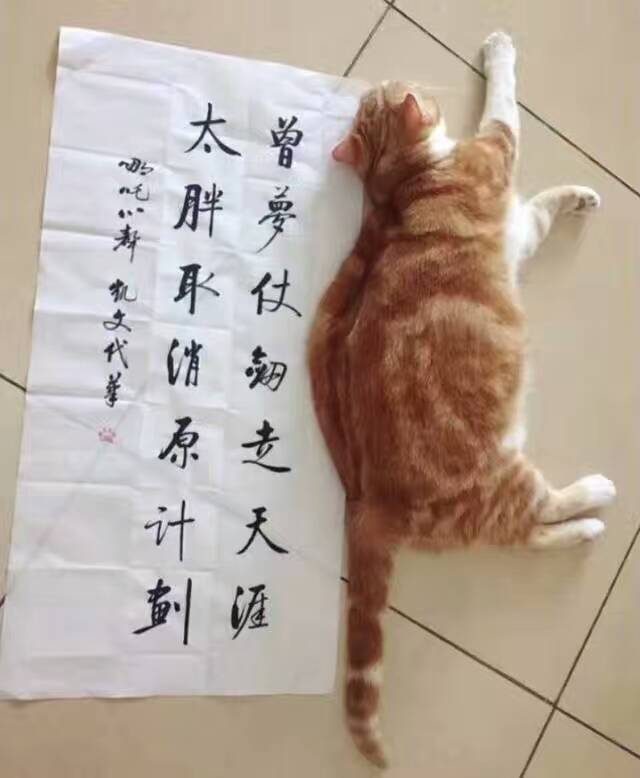 曾夢仗劍走天涯
太胖取消原計劃
哪吒小辭 凱文代筆